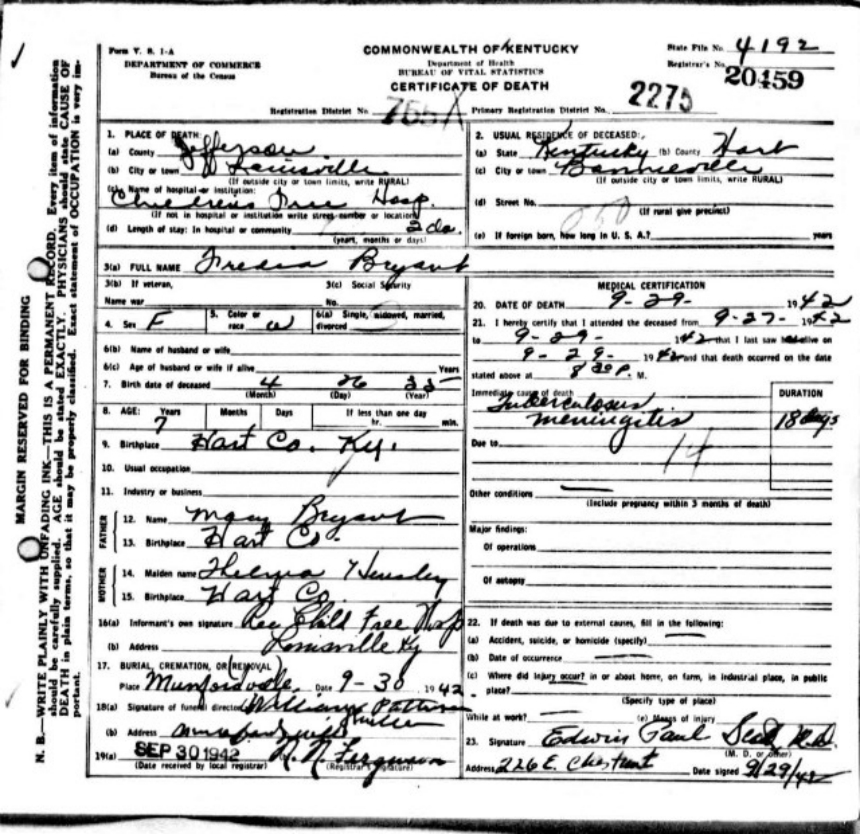 Form V. S. 1-A
DEPARTMENT OF COMMERCE
Bureau of the Census
COMMONWEALTH OF KENTUCKY
Department of Health
BUREAU OF VITAL STATISTICS
CERTIFICATE OF DEATH
State File No. 4192
Registrar's No. 20459
Registration District No. 755A Primary Registration District No. 2275
MARGIN RESERVED FOR BINDING
N. B.—WRITE PLAINLY WITH UNFADING INK—THIS IS A PERMANENT RECORD. Every item of information
should be carefully supplied. AGE should be stated EXACTLY. PHYSICIANS should state CAUSE OF
DEATH in plain terms, so that it may be properly classified. Exact statement of OCCUPATION is very im-
portant.
1. PLACE OF DEATH:
(a) County Jefferson
(b) City or town Louisville
(If outside city or town limits, write RURAL)
(c) Name of hospital or institution:
Childrens Free Hosp.
(If not in hospital or institution write street number or location)
(d) Length of stay: In hospital or community 2 da.
(years, months or days)
2. USUAL RESIDENCE OF DECEASED:
(a) State Kentucky (b) County Hart
(c) City or town Bonnieville
(If outside city or town limits, write RURAL)
(d) Street No.
(If rural give precinct)
(e) If foreign born, how long in U. S. A.? years
3(a) FULL NAME Freda Bryant
3(b) If veteran,
Name war
3(c) Social Security
No.
4. Sex F 5. Color or race W 6(a) Single, widowed, married, divorced
6(b) Name of husband or wife
6(c) Age of husband or wife if alive Years
7. Birth date of deceased 4 26 35
(Month) (Day) (Year)
8. AGE: Years Months Days If less than one day
7 hr. min.
9. Birthplace Hart Co. Ky.
10. Usual occupation
11. Industry or business
FATHER
12. Name Bryant
13. Birthplace Hart Co.
MOTHER
14. Maiden name Thelma Hensley
15. Birthplace Hart Co.
16(a) Informant's own signature Rec Child Free Hosp
(b) Address Louisville Ky
17. BURIAL, CREMATION, OR REMOVAL
Place Munfordville Date 9-30 1942
18(a) Signature of funeral director William
(b) Address Munfordville
19(a) SEP 30 1942 R. N. Ferguson
(Date received by local registrar) (Registrar's signature)
MEDICAL CERTIFICATION
20. DATE OF DEATH 9-29- 1942
21. I hereby certify that I attended the deceased from 9-27- 1942
to 9-29- 1942 that I last saw alive on
9-29- 1942 and that death occurred on the date
stated above at 8 30 P. M.
Immediate cause of death DURATION
Tuberculosis
meningitis 18 days
Due to 14
Other conditions
(Include pregnancy within 3 months of death)
Major findings:
Of operations
Of autopsy
22. If death was due to external causes, fill in the following:
(a) Accident, suicide, or homicide (specify)
(b) Date of occurrence
(c) Where did injury occur? in or about home, on farm, in industrial place, in public
place?
(Specify type of place)
While at work? (e) Means of injury
23. Signature Edwin Paul M.D.
(M. D. or other)
Address 226 E. Chestnut Date signed 9/29/42